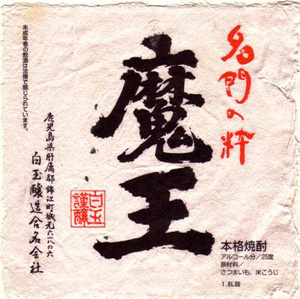 名門の粋
魔王
未成年者の飲酒は法律で禁じられています。
鹿児島県肝属郡錦江町城元六一八の六
白玉醸造合名会社
白玉
謹醸
本格焼酎
アルコール分／25度
原材料／
さつまいも、米こうじ
1.8L詰